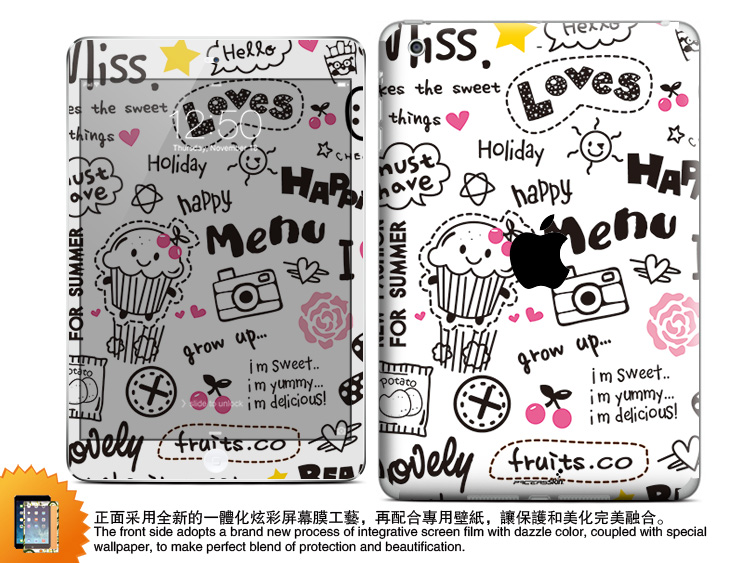 Miss.
Hello
kes the sweet
things
Loves
12:50
Thursday, November 15
Holiday
must
have
happy
HAPP
FOR SUMMER
Menu
I
grow up...
i'm sweet..
i'm yummy...
i'm delicious!
Potato
slide to unlock
lovely
fruits.co
BEA
Miss.
Hello
kes the sweet
things
Loves
Holiday
must
have
happy
HAP
NEW FASHION
FOR SUMMER
Menu
grow up...
i'm sweet..
i'm yummy...
i'm delicious!
Potato
lovely
fruits.co
BEA
正面采用全新的一體化炫彩屏幕膜工藝，再配合專用壁紙，讓保護和美化完美融合。
The front side adopts a brand new process of integrative screen film with dazzle color, coupled with special
wallpaper, to make perfect blend of protection and beautification.